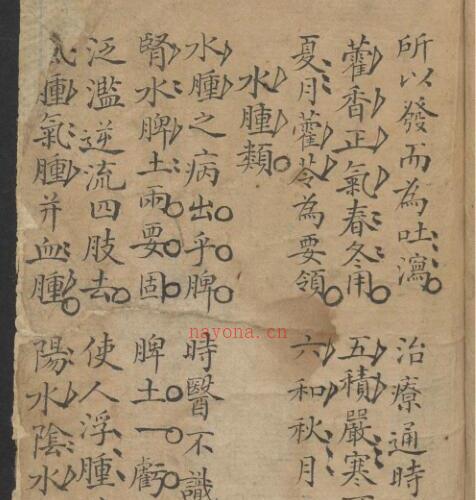 所以發而為吐瀉 治療通時
藿香正氣春冬用 五積嚴寒
夏月藿苓為要領 六和秋月
水腫類
水腫之病出乎脾 時醫不識
腎水脾土兩要固 脾土一虧
泛濫逆流四肢去 使人浮腫
腫氣腫并血腫 陽水陰水
nayona.cn